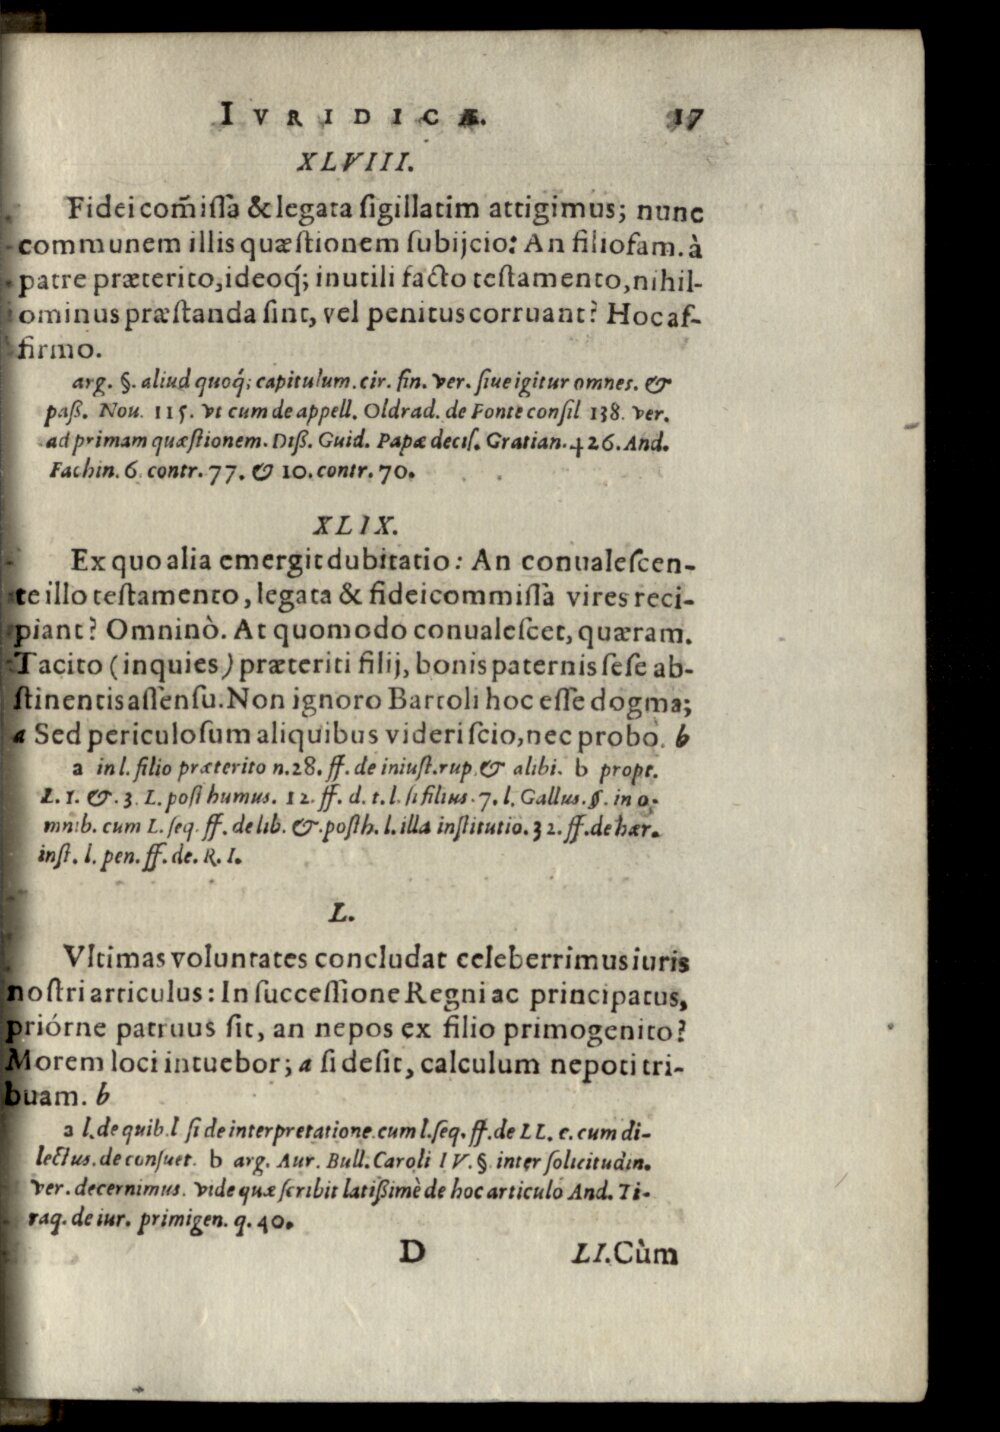 IVRIDICÆ. 17
XLVIII.
Fidei com̃issa & legata sigillatim attigimus; nunc
communem illis quæstionem subijcio: An filiofam. à
patre præterito, ideoq́; inutili facto testamento, nihil-
ominus præstanda sint, vel penitus corruant? Hoc af-
firmo.
arg. §. aliud quoq́; capitulum. cir. fin. ver. siue igitur omnes. &
paß. Nou. 115. vt cum de appell. Oldrad. de Fonte consil 138. ver.
ad primam quæstionem. Diß. Guid. Papæ decis. Gratian. 426. And.
Fachin. 6. contr. 77. & 10. contr. 70.
XLIX.
Ex quo alia emergit dubitatio: An conualescen-
te illo testamento, legata & fideicommissa vires reci-
piant? Omninò. At quomodo conualescet, quæram.
Tacito (inquies) præteriti filij, bonis paternis sese ab-
stinentis assensu. Non ignoro Bartoli hoc esse dogma;
a Sed periculosum aliquibus videri scio, nec probò. b
a in l. filio præterito n. 28. ff. de iniust. rup. & alibi. b propt.
L. 1. &. 3. L. posthumus. 12. ff. d. t. l. si filius. 7. l. Gallus. §. in o-
mnib. cum L. seq. ff. de lib. &. posth. l. illa institutio. 32. ff. de hær.
inst. l. pen. ff. de. R. I.
L.
Vltimas voluntates concludat celeberrimus iuris
nostri articulus: In successione Regni ac principatus,
priórne patruus sit, an nepos ex filio primogenito?
Morem loci intuebor; a si desit, calculum nepoti tri-
buam. b
a l. de quib. l si de interpretatione. cum l. seq. ff. de LL. c. cum di-
lectus. de consuet. b arg. Aur. Bull. Caroli IV. §. inter solicitudin.
ver. decernimus. vide quæ scribit latißimè de hoc articulo And. Ti-
raq. de iur. primigen. q. 40.
D LI. Cùm